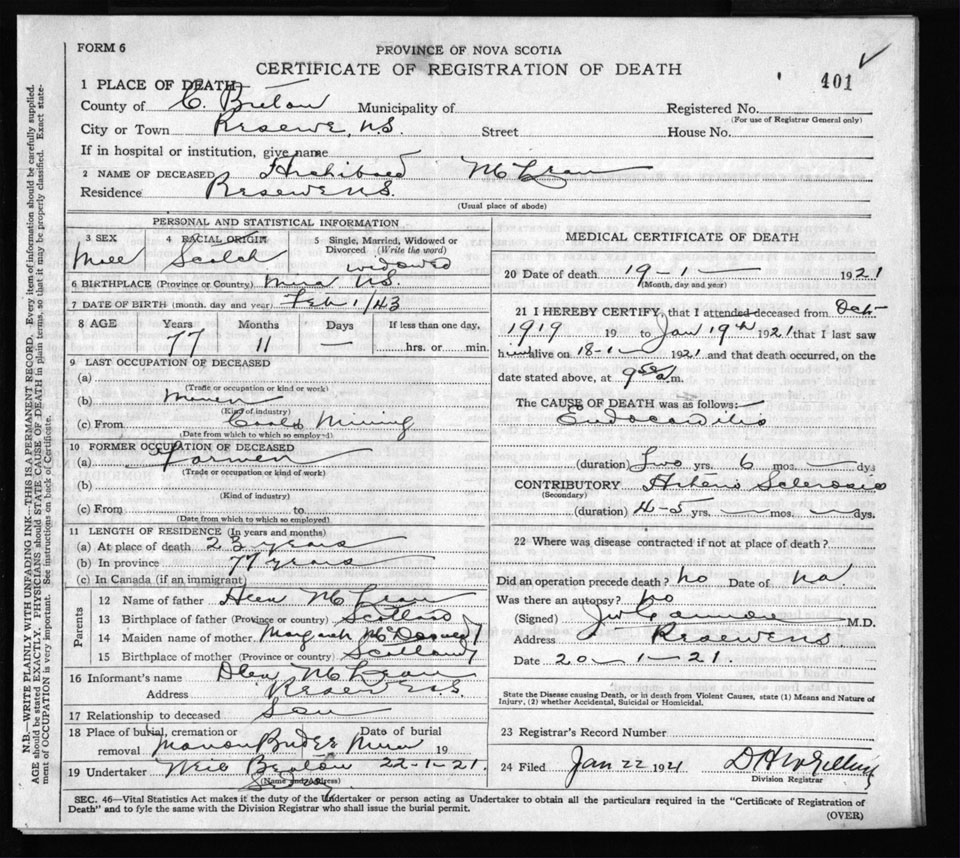 FORM 6
PROVINCE OF NOVA SCOTIA
CERTIFICATE OF REGISTRATION OF DEATH
401
1 PLACE OF DEATH
County of C. Breton Municipality of Registered No.
(For use of Registrar General only)
City or Town Reserve, N.S. Street House No.
If in hospital or institution, give name
2 NAME OF DECEASED Archibald McLean
Residence Reserve N.S.
(Usual place of abode)
PERSONAL AND STATISTICAL INFORMATION
3 SEX 4 RACIAL ORIGIN 5 Single, Married, Widowed or
Divorced (Write the word)
Male Scotch widowed
6 BIRTHPLACE (Province or Country) Mira N.S.
7 DATE OF BIRTH (month, day and year) Feb 1/43
8 AGE Years Months Days If less than one day,
77 11 — hrs. or min.
9 LAST OCCUPATION OF DECEASED
(a)
(Trade or occupation or kind or work)
(b)
(Kind of industry)
(c) From Mining
(Date from which to which so employed)
10 FORMER OCCUPATION OF DECEASED
(a) Farmer
(Trade or occupation or kind of work)
(b)
(Kind of industry)
(c) From to
(Date from which to which so employed)
11 LENGTH OF RESIDENCE (In years and months)
(a) At place of death 23 years
(b) In province 77 years
(c) In Canada (if an immigrant)
Parents
12 Name of father McLean
13 Birthplace of father (Province or country) Scotland
14 Maiden name of mother Margaret McDonald
15 Birthplace of mother (Province or country) Scotland
16 Informant's name McLean
Address Reserve N.S.
17 Relationship to deceased Son
18 Place of burial, cremation or Date of burial
removal Marion Bridge Mira 19
19 Undertaker 22-1-21.
(Name and Address)
MEDICAL CERTIFICATE OF DEATH
20 Date of death 19-1- 1921
(Month, day and year)
21 I HEREBY CERTIFY, that I attended deceased from Oct
1919 19 to Jan 19th 1921 that I last saw
him alive on 18-1- 1921 and that death occurred, on the
date stated above, at a.m.
The CAUSE OF DEATH was as follows:
Endocarditis
(duration) Two yrs. 6 mos. dys
CONTRIBUTORY Arterio Sclerosis
(Secondary)
(duration) 4-5 yrs. mos. dys.
22 Where was disease contracted if not at place of death?
Did an operation precede death? No Date of na
Was there an autopsy? No
(Signed) M.D.
Address Reserve N.S.
Date 20-1-21.
State the Disease causing Death, or in death from Violent Causes, state (1) Means and Nature of
Injury, (2) whether Accidental, Suicidal or Homicidal.
23 Registrar's Record Number
24 Filed Jan 22 1921
Division Registrar
SEC. 46—Vital Statistics Act makes it the duty of the Undertaker or person acting as Undertaker to obtain all the particulars required in the "Certificate of Registration of
Death" and to fyle the same with the Division Registrar who shall issue the burial permit.
(OVER)
N.B.—WRITE PLAINLY WITH UNFADING INK—THIS IS A PERMANENT RECORD. Every item of information should be carefully supplied.
AGE should be stated EXACTLY. PHYSICIANS should STATE CAUSE OF DEATH in plain terms, so that it may be properly classified. Exact state-
ment of OCCUPATION is very important. See instructions on back of Certificate.